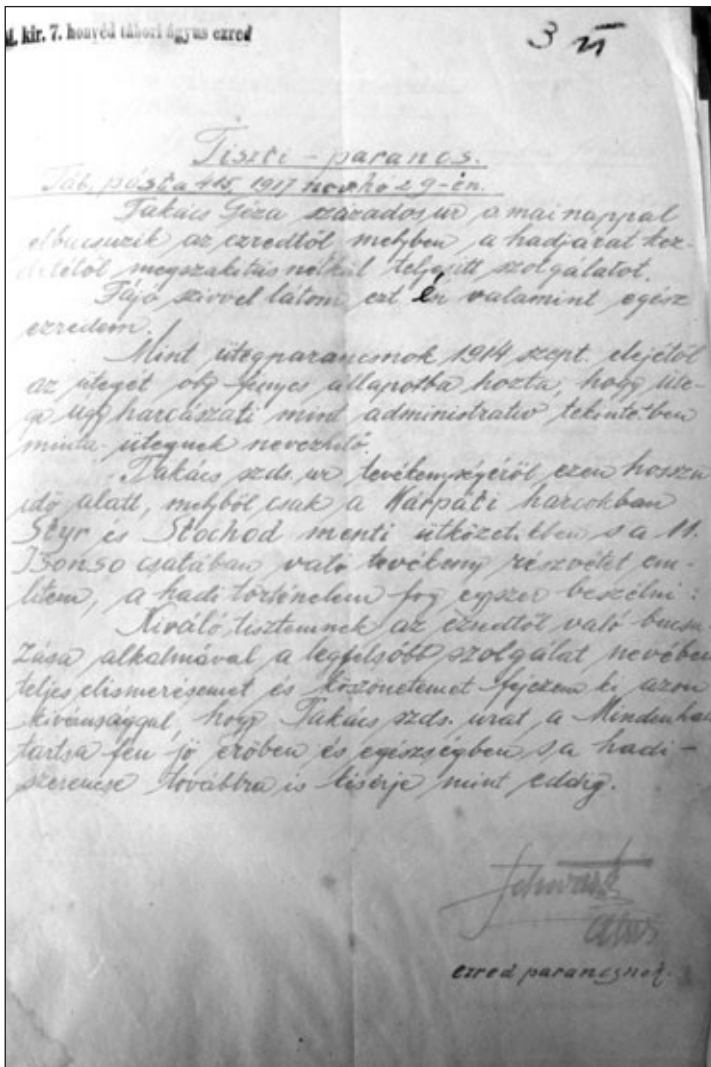 M. kir. 7. honvéd tábori ágyus ezred
3 VI
Tiszti-parancs.
Táb. pósta 415, 1917 nov. hó 29-én.
Takács Géza százados ur a mai nappal
elbucsuzik az ezredtől melyben a hadjárat kez-
detétől megszakitás nélkül teljesitett szolgálatot.
Fájó szivvel látom ezt én valamint egész
ezredem.
Mint ütegparancsnok 1914 szept. elejétől
az ütegét oly fényes állapotba hozta, hogy üte-
ge ugy harcászati mint administrativ tekintetben
minta-ütegnek nevezhető.
Takács szds. ur tevékenységéről ezen hosszu
idő alatt, melyből csak a Kárpáti harcokban
Styr és Stochod menti ütközetekben s a 11.
Isonso csatában való tevékeny részvétet em-
litem, a hadi történelem fog egyszer beszélni:
Kiváló tisztemnek az ezredtől való bucsu-
zása alkalmával a legfelsőbb szolgálat nevében
teljes elismerésemet és köszönetemet fejezem ki azon
kivánsággal, hogy Takács szds. urat, a Mindenható
tartsa fen jó erőben és egészségben s a hadi-
szerencse továbbra is kisérje mint eddig.
ezred parancsnok.